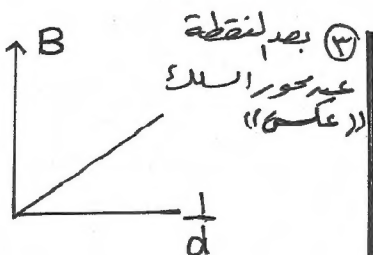 ٣ بعد النقطة
عن محور السلك
((عكسي))
B
1/d